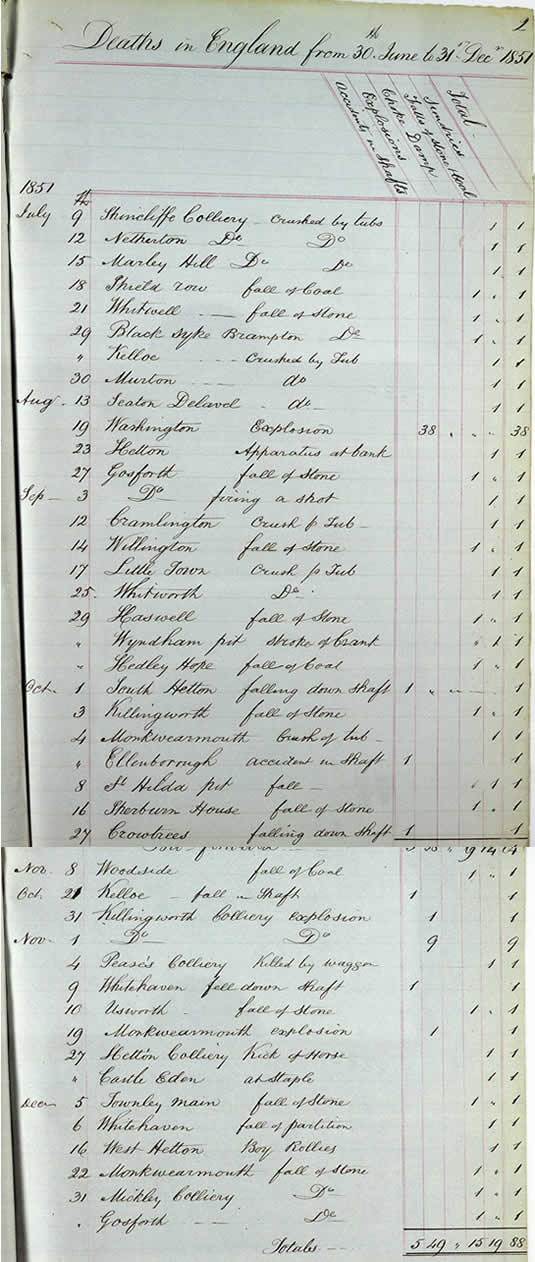 2
Deaths in England from 30th June to 31st Decr 1851
Accidents in Shafts
Explosions
Choke Damp
Falls of Stone & Coal
Sundries
Total
1851
July 9th Shincliffe Colliery - crushed by tubs 1 1
12 Netherton Do Do 1 1
15 Marley Hill Do Do 1 1
18 Shield row fall of Coal 1 " 1
21 Whitwell fall of Stone 1 " 1
29 Black Syke Brampton Do 1 " 1
" Kelloe crushed by Tub 1 1
30 Murton do 1 1
Aug. 13 Seaton Delavel do 1 1
19 Washington Explosion 38 " " " 38
23 Hetton Apparatus at bank 1 1
27 Gosforth fall of Stone 1 " 1
Sep 3 Do firing a shot 1 1
12 Cramlington Crush p Tub 1 1
14 Willington fall of Stone 1 " 1
17 Little Town Crush p Tub 1 1
25. Whitworth Do 1 1
29 Haswell fall of Stone 1 " 1
" Wyndham pit stroke of Crank " 1 1
" Hedley Hope fall of Coal 1 " 1
Oct. 1 South Hetton falling down Shaft 1 " " 1
3 Killingworth fall of Stone 1 " 1
4 Monkwearmouth Crush of tub 1 1
" Ellenborough accident in Shaft 1 1
8 St Hilda pit fall 1 1
16 Sherburn House fall of Stone 1 " 1
27 Crowtrees falling down Shaft 1 1
forward
Nov. 8 Woodside fall of Coal 1 " 1
Oct. 21 Kelloe - fall in Shaft 1 1
31 Killingworth Colliery explosion 1 1
Nov. 1 Do Do 9 9
4 Pease's Colliery Killed by waggon 1 1
9 Whitehaven fell down Shaft 1 1
10 Usworth - fall of Stone 1 " 1
19 Monkwearmouth explosion 1 1
27 Hetton Colliery Kick of Horse 1 1
" Castle Eden at Staple 1 1
Decr 5 Townley Main fall of Stone 1 " 1
6 Whitehaven fall of partition 1 1
16 West Hetton Boy Rollies 1 1
22 Monkwearmouth fall of Stone 1 " 1
31 Mickley Colliery Do 1 " 1
" Gosforth Do 1 " 1
Totals 5 49 " 15 19 88